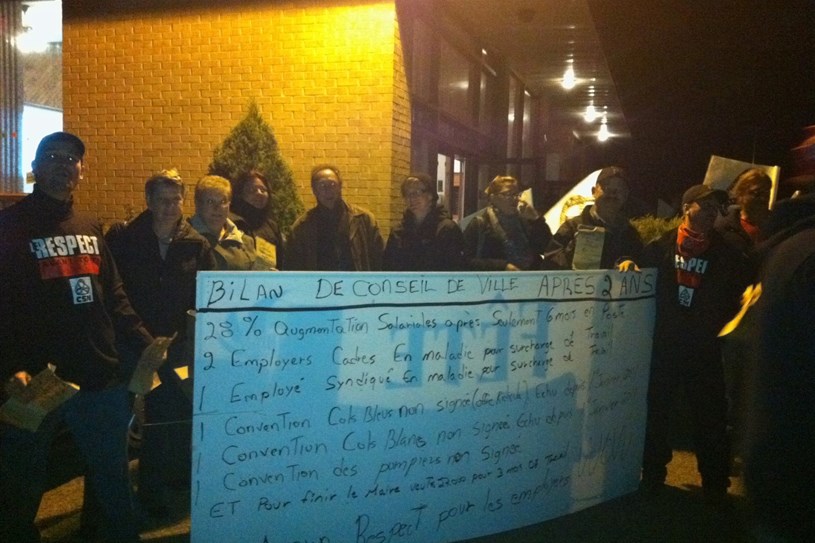 RESPECT
CSN
RESPE
BILAN DE CONSEIL DE VILLE APRÈS 2 ANS
28 % augmentation Salariales après Seulement 6 mois en Poste
2 Employers Cadres En maladie pour surcharge de Travail
1 Employé Syndiqué En maladie pour surcharge de Travail
1 Convention Cols Bleus non signée Echu depuis
1 Convention Cols Blancs non signée Echu depuis
1 Convention des pompiers non Signée
ET Pour finir le Maire pour 3 mois de Travail
Aucun Respect pour les employers